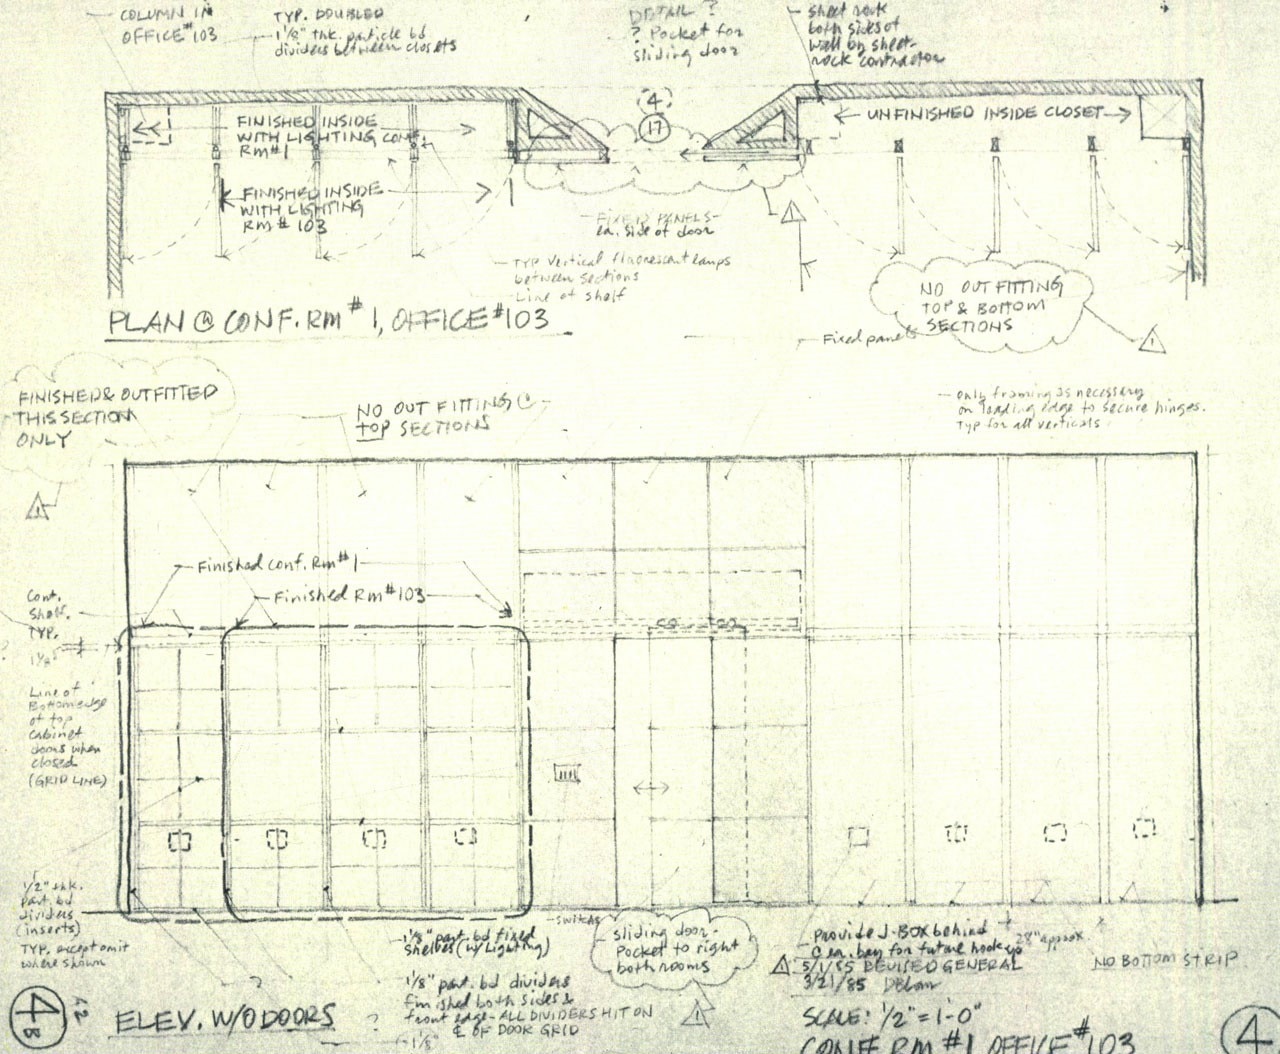 COLUMN IN
OFFICE #103
TYP. DOUBLED
1 1/8" thk. particle bd
dividers between closets
DETAIL ?
? Pocket for
sliding door
sheet rock
both sides of
wall by sheet-
rock contractor
4
17
FINISHED INSIDE
WITH LIGHTING CONF.
RM #1
FINISHED INSIDE
WITH LIGHTING
RM # 103
UNFINISHED INSIDE CLOSET
FIXED PANELS
ea. side of door
1
TYP Vertical fluorescent lamps
between sections
Line of shelf
NO OUTFITTING
TOP & BOTTOM
SECTIONS
1
Fixed panels
PLAN @ CONF. RM #1, OFFICE #103
FINISHED & OUTFITTED
THIS SECTION
ONLY
1
NO OUTFITTING @
TOP SECTIONS
only framing as necessary
on leading edge to secure hinges.
TYP for all verticals
Finished conf. Rm #1
Finished RM #103
Cont.
Shelf.
TYP.
1 1/8"
Line of
Bottom edge
of top
cabinet
doors when
closed
(GRID LINE)
1/2" thk.
part. bd
dividers
(inserts)
TYP. except omit
where shown
switch
1 1/8" part. bd fixed
shelves (w/ Lighting)
1 1/8" part. bd dividers
finished both sides &
front edge - ALL DIVIDERS HIT ON
℄ OF DOOR GRID
1 1/8"
sliding door -
Pocket to right
both rooms
1
Provide J-BOX behind
@ ea. bay for future hookup
28" approx.
1 5/1/85 REVISED GENERAL
3/21/85
NO BOTTOM STRIP
4B
ELEV. W/O DOORS
?
?
SCALE: 1/2" = 1'-0"
CONF RM #1 OFFICE #103
4